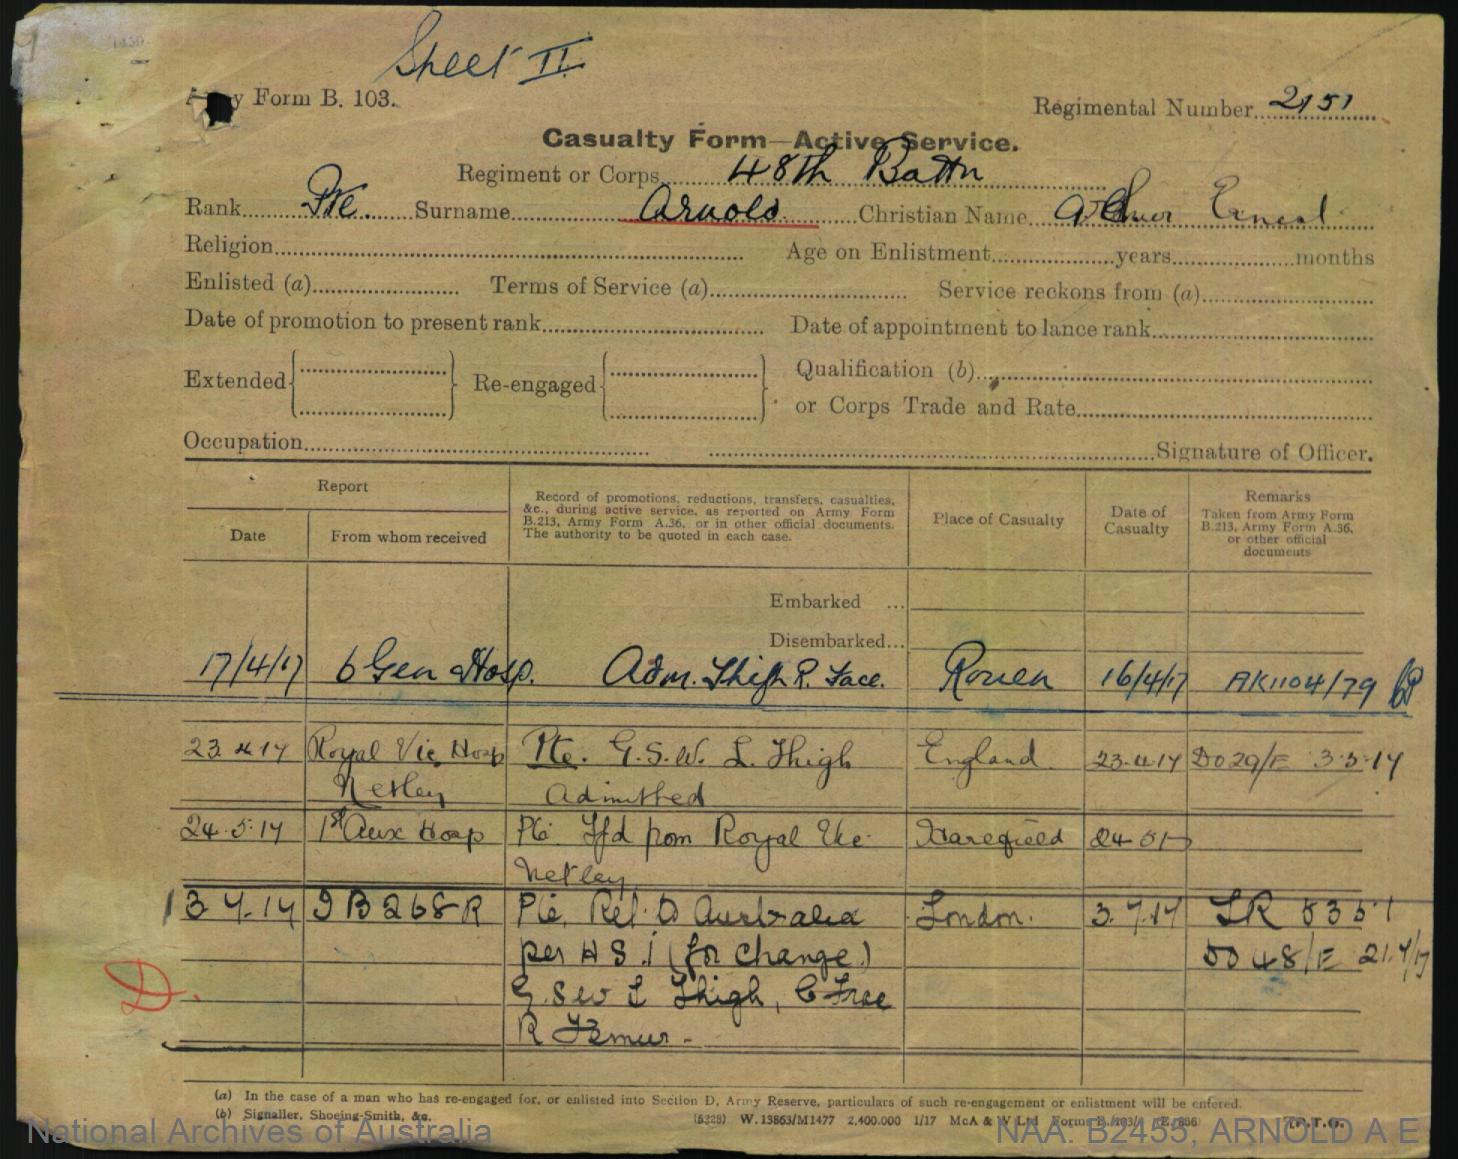 Sheet II
Army Form B. 103.
Regimental Number 2151
Casualty Form—Active Service.
Regiment or Corps 48th Battn
Rank Pte. Surname Arnold Christian Name Arthur Ernest
Religion Age on Enlistment years months
Enlisted (a) Terms of Service (a) Service reckons from (a)
Date of promotion to present rank Date of appointment to lance rank
Extended Re-engaged Qualification (b)
or Corps Trade and Rate
Occupation Signature of Officer.
Report
Date
From whom received
Record of promotions, reductions, transfers, casualties,
&c., during active service, as reported on Army Form
B.213, Army Form A.36, or in other official documents.
The authority to be quoted in each case.
Place of Casualty
Date of
Casualty
Remarks
Taken from Army Form
B.213, Army Form A.36,
or other official
documents
Embarked ...
Disembarked...
17/4/17 6 Gen Hosp. Adm. Thigh R. Face. Rouen 16/4/17 AK1104/79
23.4.17 Royal Vic. Hosp Pte. G.S.W. L. Thigh England 23.4.17 DO29/E 3.5.17
Netley Admitted
24.5.17 1st Aux Hosp Pte Tfd from Royal Vic Harefield 24.5.17
Netley
3.7.17 IB268R Pte. Ret. to Australia London. 3.7.17 LR 8351
per H S.1 (for change.) DO 48/E 21.7/17
G.S.W L Thigh, C Frac
R Femur.
D.
(a) In the case of a man who has re-engaged for, or enlisted into Section D, Army Reserve, particulars of such re-engagement or enlistment will be entered.
(b) Signaller, Shoeing-Smith, &c.
(6328) W.13863/M1477 2,400,000 1/17 McA & W Ltd Forms B./103/1 (E. 856) P.T.O.
National Archives of Australia
NAA: B2455, ARNOLD A E